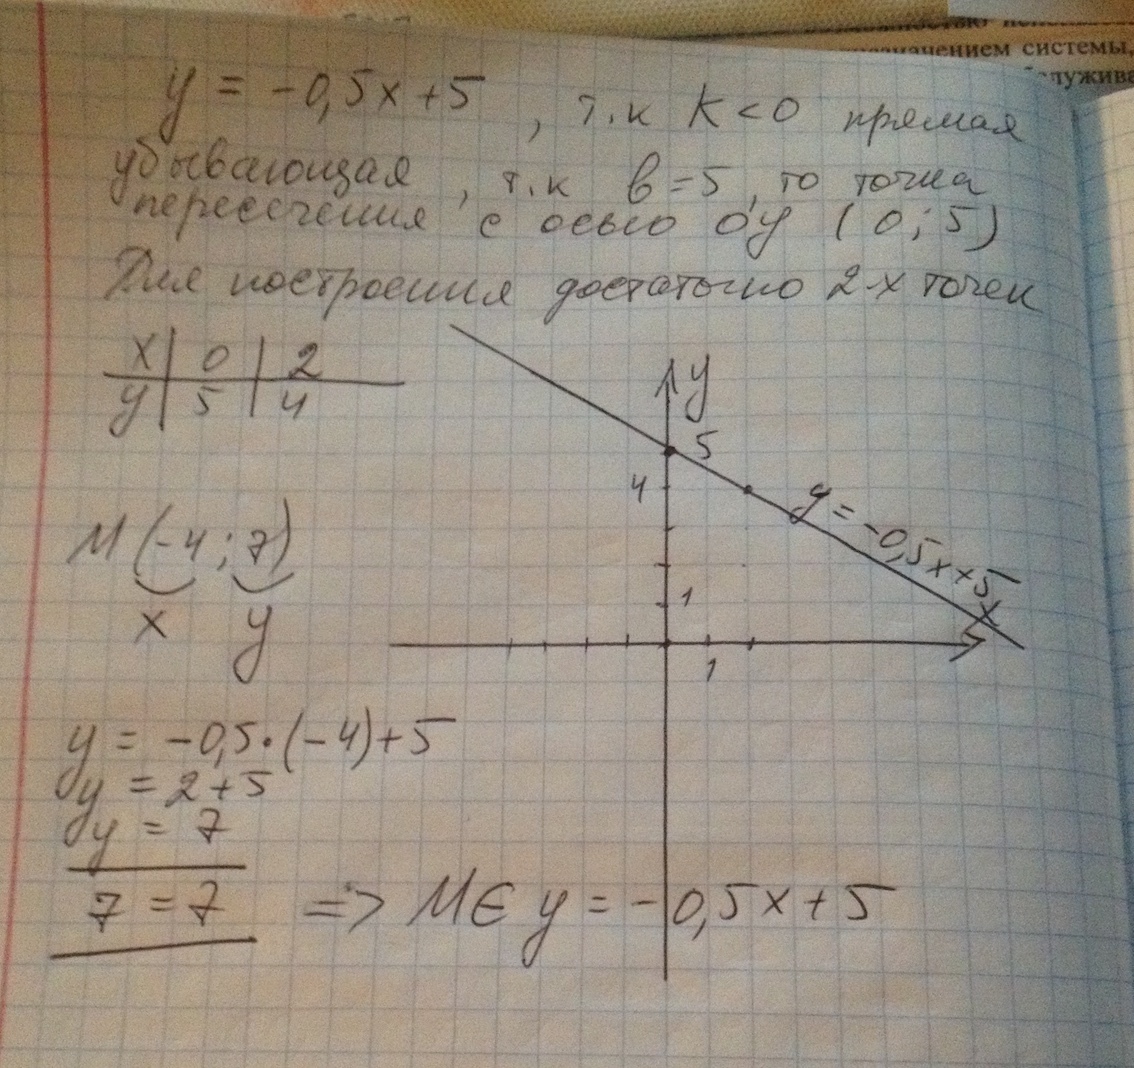 значением системы,
y = -0,5x+5 , т.к K<0 прямая
убывающая , т.к b=5, то точка
пересечения с осью oy (0;5)
Для построения достаточно 2-х точек
x | 0 | 2
y | 5 | 4
y
5
4
y = -0,5x+5
1
x
1
M (-4;7)
x y
y = -0,5·(-4)+5
y = 2+5
y = 7
7 = 7 => M∈ y = -0,5x+5